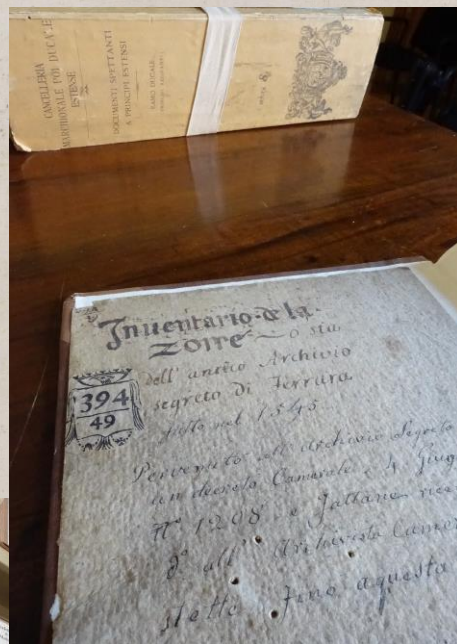 CANCELLERIA
MARCHIONALE POI DUCALE
ESTENSE
DOCUMENTI SPETTANTI
A PRINCIPI ESTENSI
RAMO DUCALE
Inuentario de la
Torre o sia
dell' antico Archivio
segreto di Ferrara
fatto nel 1545
394
49
Pervenuto all' Archivio Segreto
con decreto Camerale 4 Giug
N° 1208 e
d° all' Archivista Camer
stette fino a questa